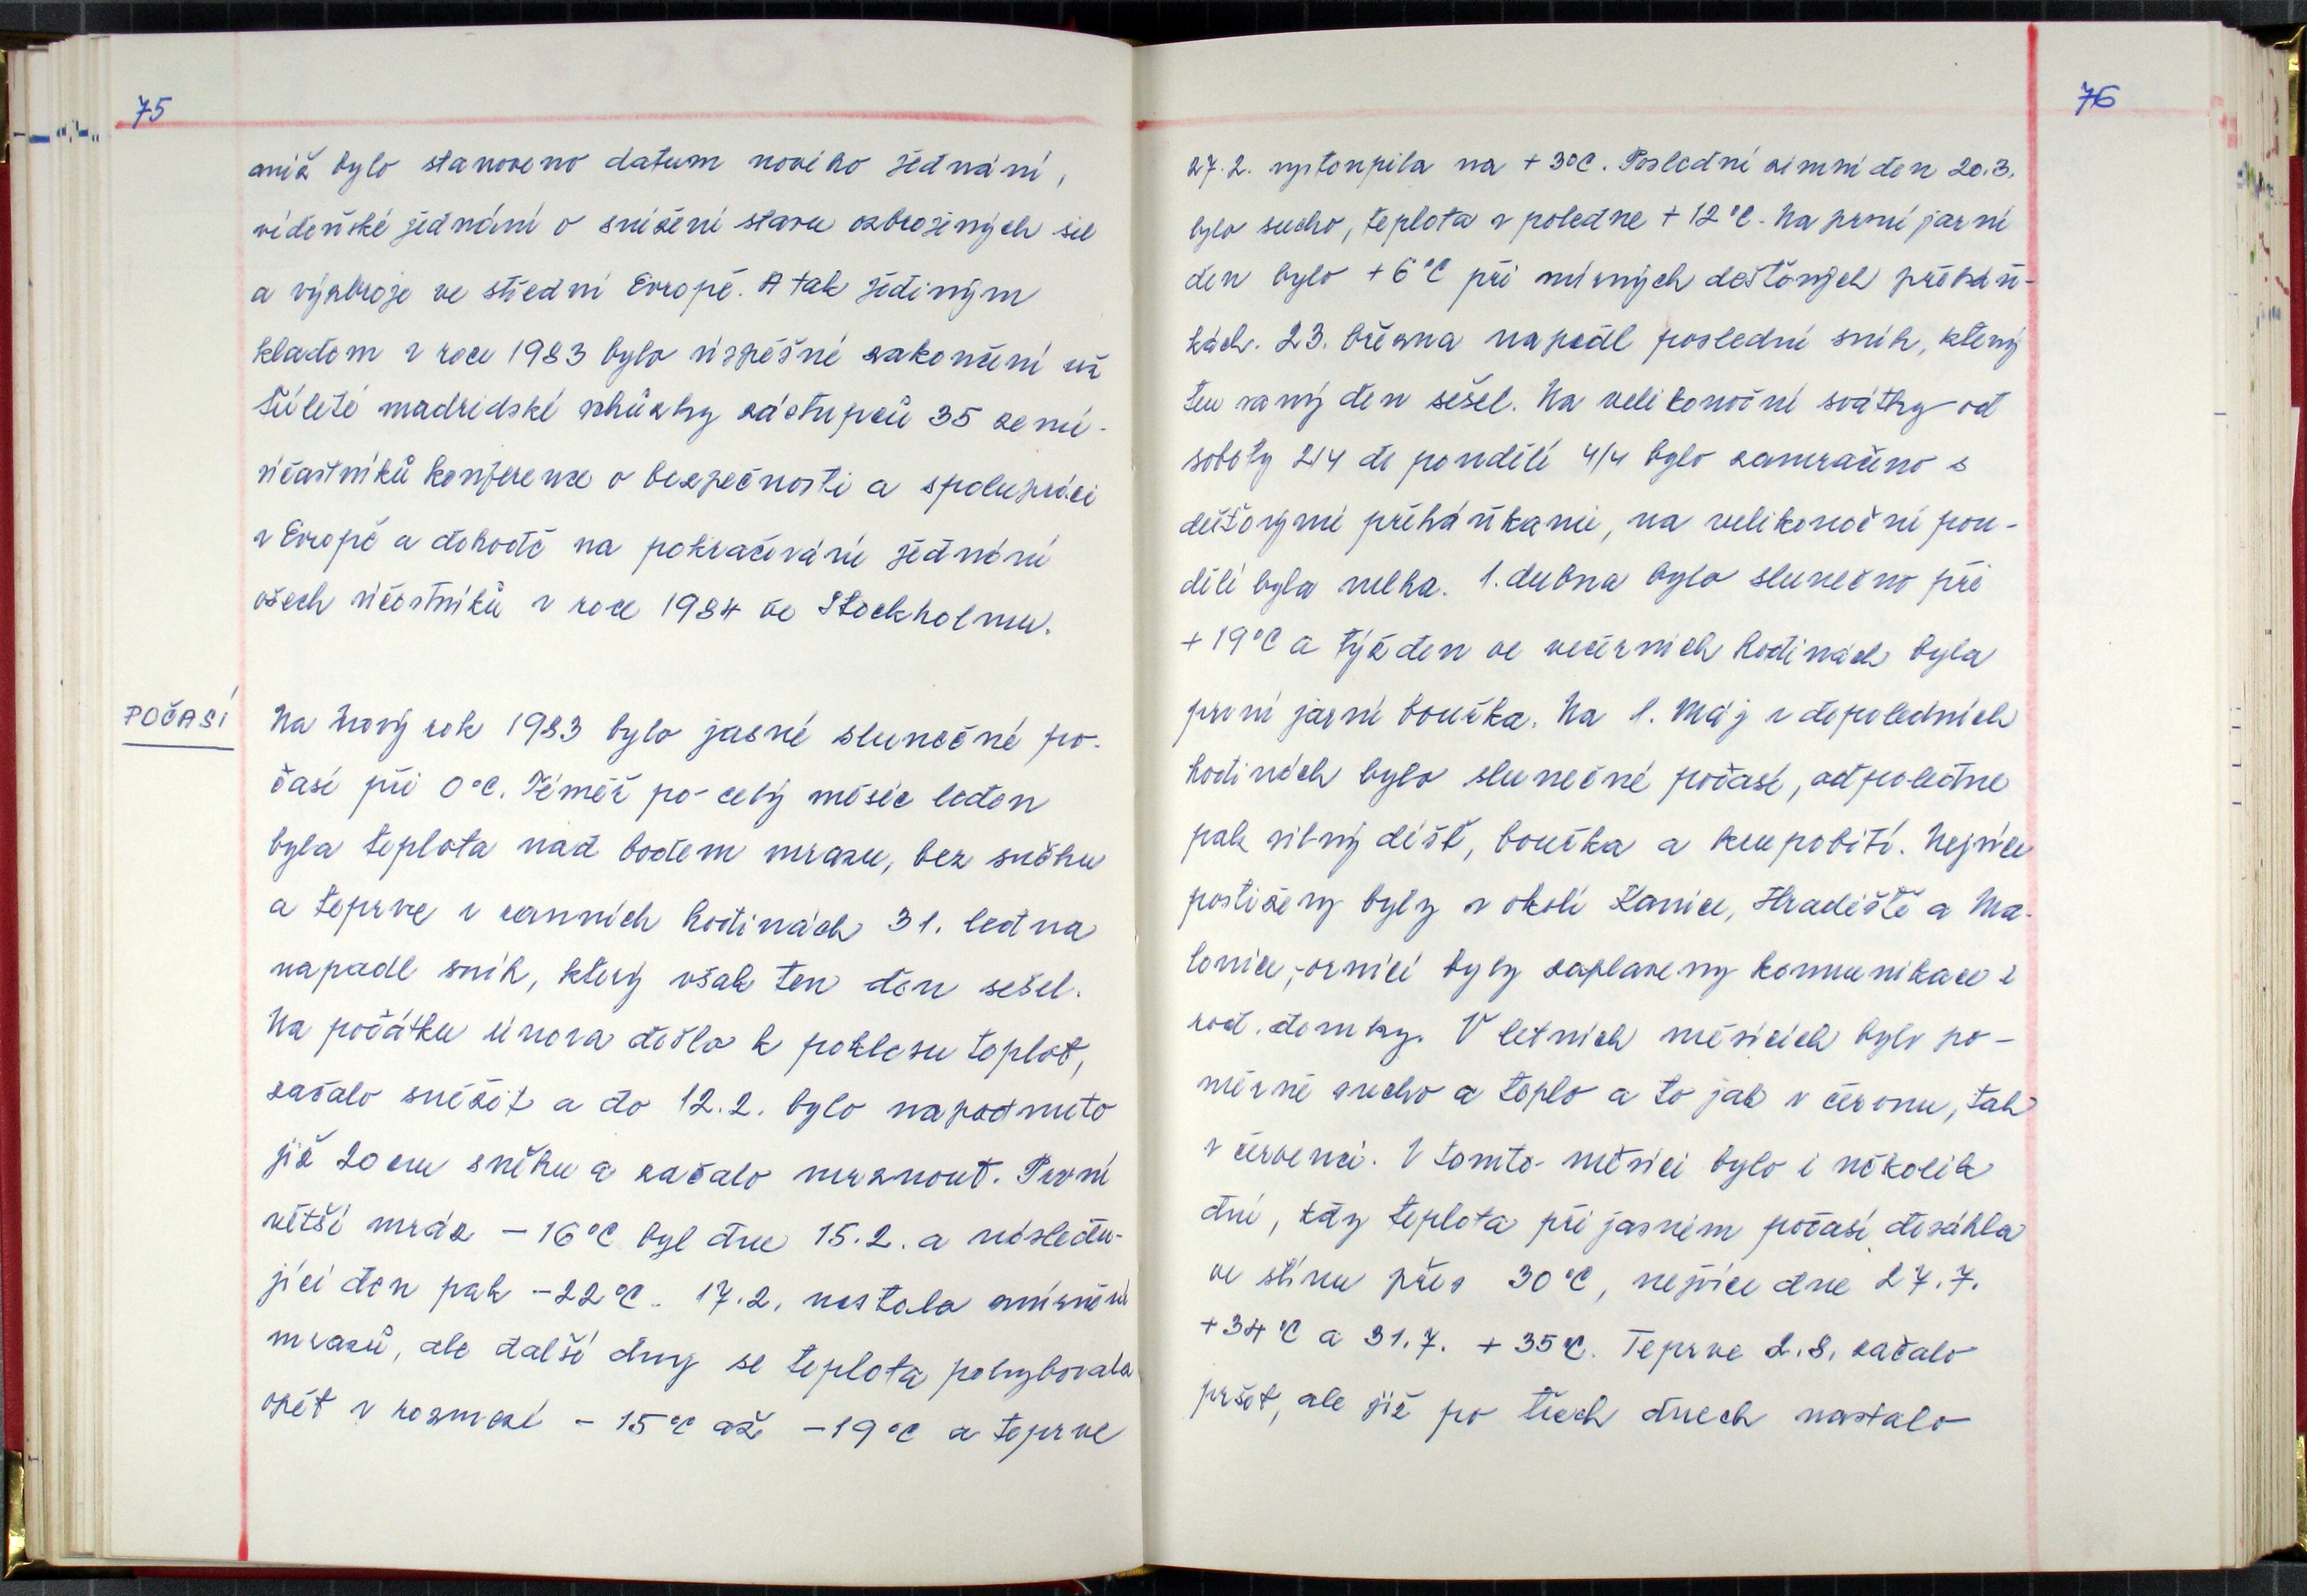 75
aniž bylo stanoveno datum nového jednání,
vídeňské jednání o snížení stavu ozbrojených sil
a výzbroje ve střední Evropě. A tak jediným
kladem v roce 1983 bylo úspěšné zakončení už
tříleté madridské schůzky zástupců 35 zemí-
účastníků konference o bezpečnosti a spolupráci
v Evropě a dohodě na pokračování jednání
všech účastníků v roce 1984 ve Stockholmu.
POČASÍ
Na Nový rok 1983 bylo jasné slunečné po-
časí při 0°C. Téměř po celý měsíc leden
byla teplota nad bodem mrazu, bez sněhu
a teprve v ranních hodinách 31. ledna
napadl sníh, který však ten den sešel.
Na počátku února došlo k poklesu teplot,
začalo sněžit a do 12.2. bylo napadnuto
již 20 cm sněhu a začalo mrznout. První
větší mráz -16°C byl dne 15.2. a následu-
jící den pak -22°C. 17.2. nastala zmírnění
mrazů, ale další dny se teplota pohybovala
opět v rozmezí -15°C až -19°C a teprve
76
27.2. vystoupila na +3°C. Poslední zimní den 20.3.
bylo sucho, teplota v poledne +12°C. Na první jarní
den bylo +6°C při mírných dešťových přeháň-
kách. 23. března napadl poslední sníh, který
ten samý den sešel. Na velikonoční svátky od
soboty 2/4 do pondělí 4/4 bylo zamračeno s
dešťovými přeháňkami, na velikonoční pon-
dělí byla mlha. 1. dubna bylo slunečno při
+19°C a týž den ve večerních hodinách byla
první jarní bouřka. Na 1. Máj v dopoledních
hodinách bylo slunečné počasí, odpoledne
pak silný déšť, bouřka a krupobití. Nejvíce
postiženy byly v okolí Kanice, Hradiště a Ma-
lonice, ornicí byly zaplaveny komunikace i
rod. domky. V letních měsících bylo po-
měrně sucho a teplo a to jak v červnu, tak
v červenci. V tomto měsíci bylo i několik
dní, kdy teplota při jasném počasí dosáhla
ve stínu přes 30°C, nejvíce dne 27.7.
+34°C a 31.7. +35°C. Teprve 2.8. začalo
pršet, ale již po třech dnech nastalo